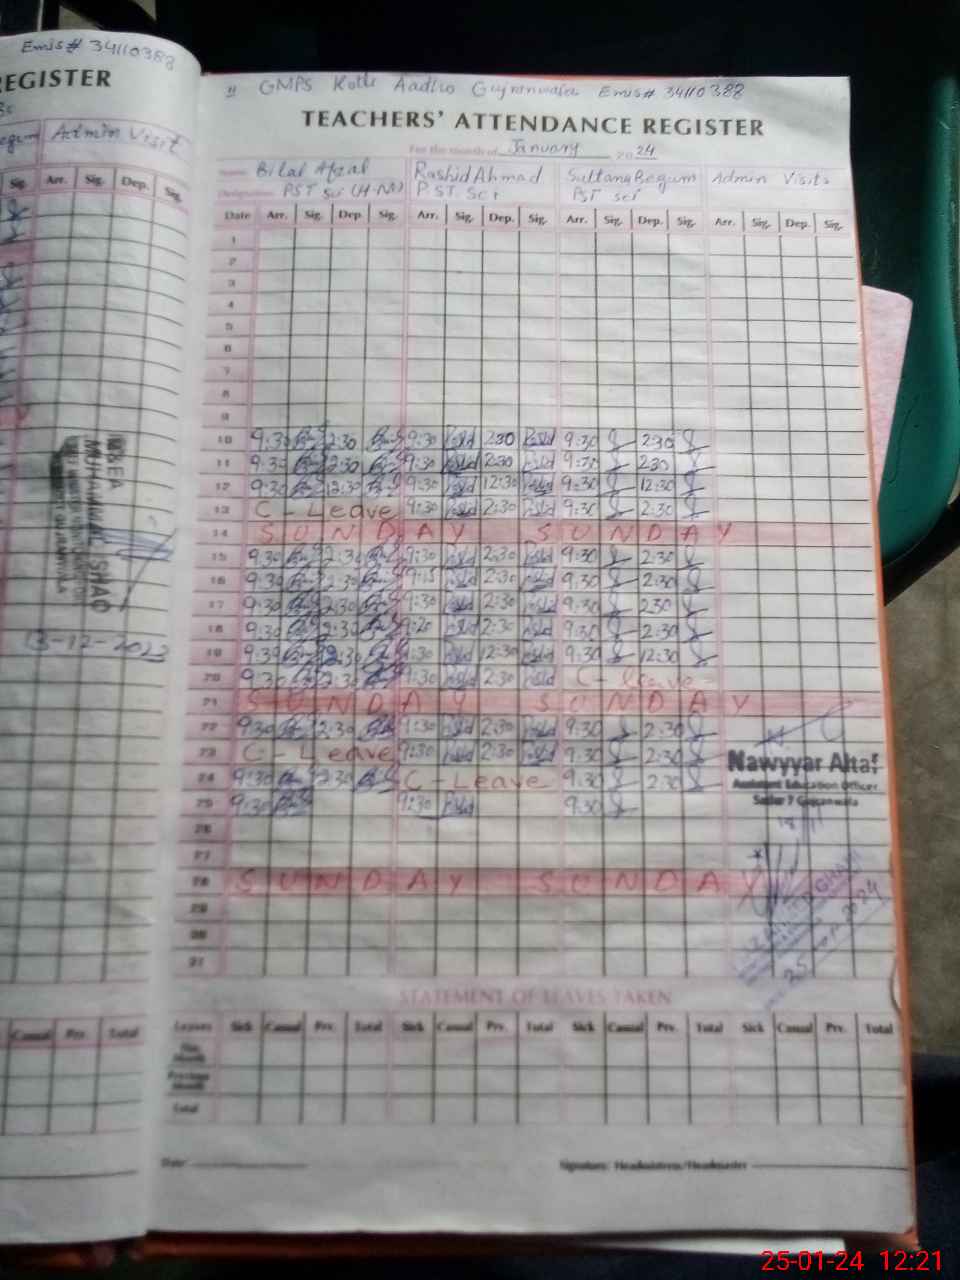 Emis# 34110388
REGISTER
Admin Visit
Sig. Arr. Sig. Dep. Sig.
MUHAMMAD
13-12-2023
Casual Prv. Total
11 GMPS Kotli Aadho Gujranwala Emis# 34110388
TEACHERS' ATTENDANCE REGISTER
For the month of January 2024
Name: Bilal Afzal Rashid Ahmad Sultana Begum Admin Visits
Designation: PST Sci (H-M) PST Sci PST Sci
Date Arr. Sig. Dep. Sig. Arr. Sig. Dep. Sig. Arr. Sig. Dep. Sig. Arr. Sig. Dep. Sig.
1
2
3
4
5
6
7
8
9
10 9:30 2:30 9:30 Rashid 2:30 Rashid 9:30 2:30
11 9:30 2:30 9:30 Rashid 2:30 Rashid 9:30 2:30
12 9:30 12:30 9:30 Rashid 12:30 Rashid 9:30 12:30
13 C - Leave 9:30 Rashid 2:30 Rashid 9:30 2:30
14 SUNDAY SUNDAY
15 9:30 2:30 9:30 Rashid 2:30 Rashid 9:30 2:30
16 9:30 2:30 9:15 Rashid 2:30 Rashid 9:30 2:30
17 9:30 2:30 9:30 Rashid 2:30 Rashid 9:30 2:30
18 9:30 2:30 9:20 Rashid 2:30 Rashid 9:30 2:30
19 9:30 12:30 9:30 Rashid 12:30 Rashid 9:30 12:30
20 9:30 2:30 9:30 Rashid 2:30 Rashid C - leave
21 SUNDAY SUNDAY
22 9:30 2:30 9:30 Rashid 2:30 Rashid 9:30 2:30
23 C - Leave 9:30 Rashid 2:30 Rashid 9:30 2:30
24 9:30 2:30 C - Leave 9:30 2:30
25 9:30 9:30 Rashid 9:30
26
27
28 SUNDAY SUNDAY
29
30
31
Nawyyar Altaf
Assistant Education Officer
Sadar 7 Gujranwala
GHANI
25 2024
STATEMENT OF LEAVES TAKEN
Leaves Sick Casual Prv. Total Sick Casual Prv. Total Sick Casual Prv. Total Sick Casual Prv. Total
This Month
Previous Month
Total
Date Signature: Headmistress/Headmaster
25-01-24 12:21